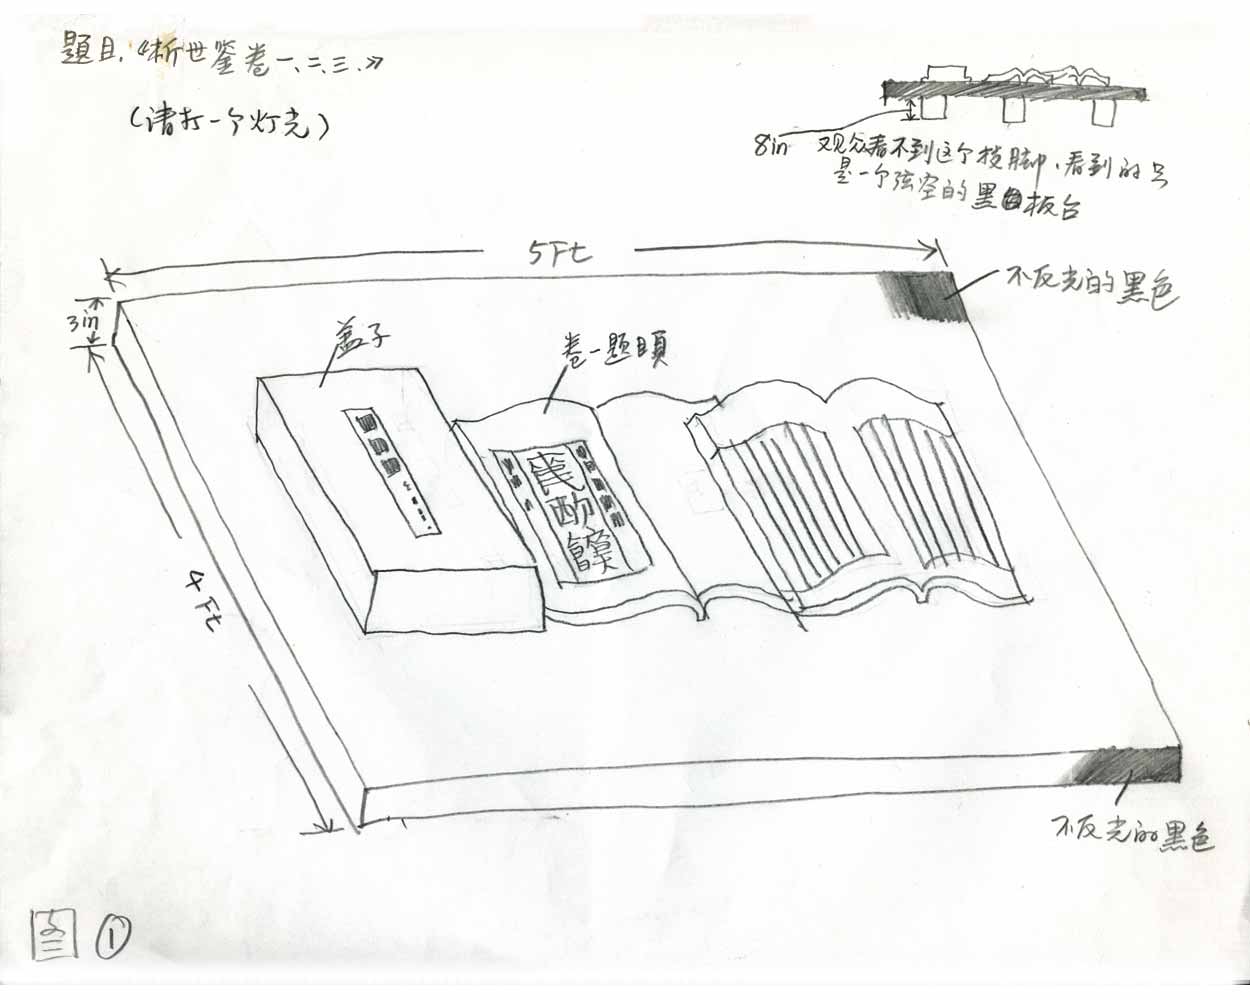 题目.《析世鉴卷一、二、三.》
(请打一个灯光)
8in
观众看不到这个枝脚、看到的只
是一个弦空的黑色板台
5Ft
不反光的黑色
3in
盖子
卷一题目頁
4Ft
不反光的黑色
图 ①